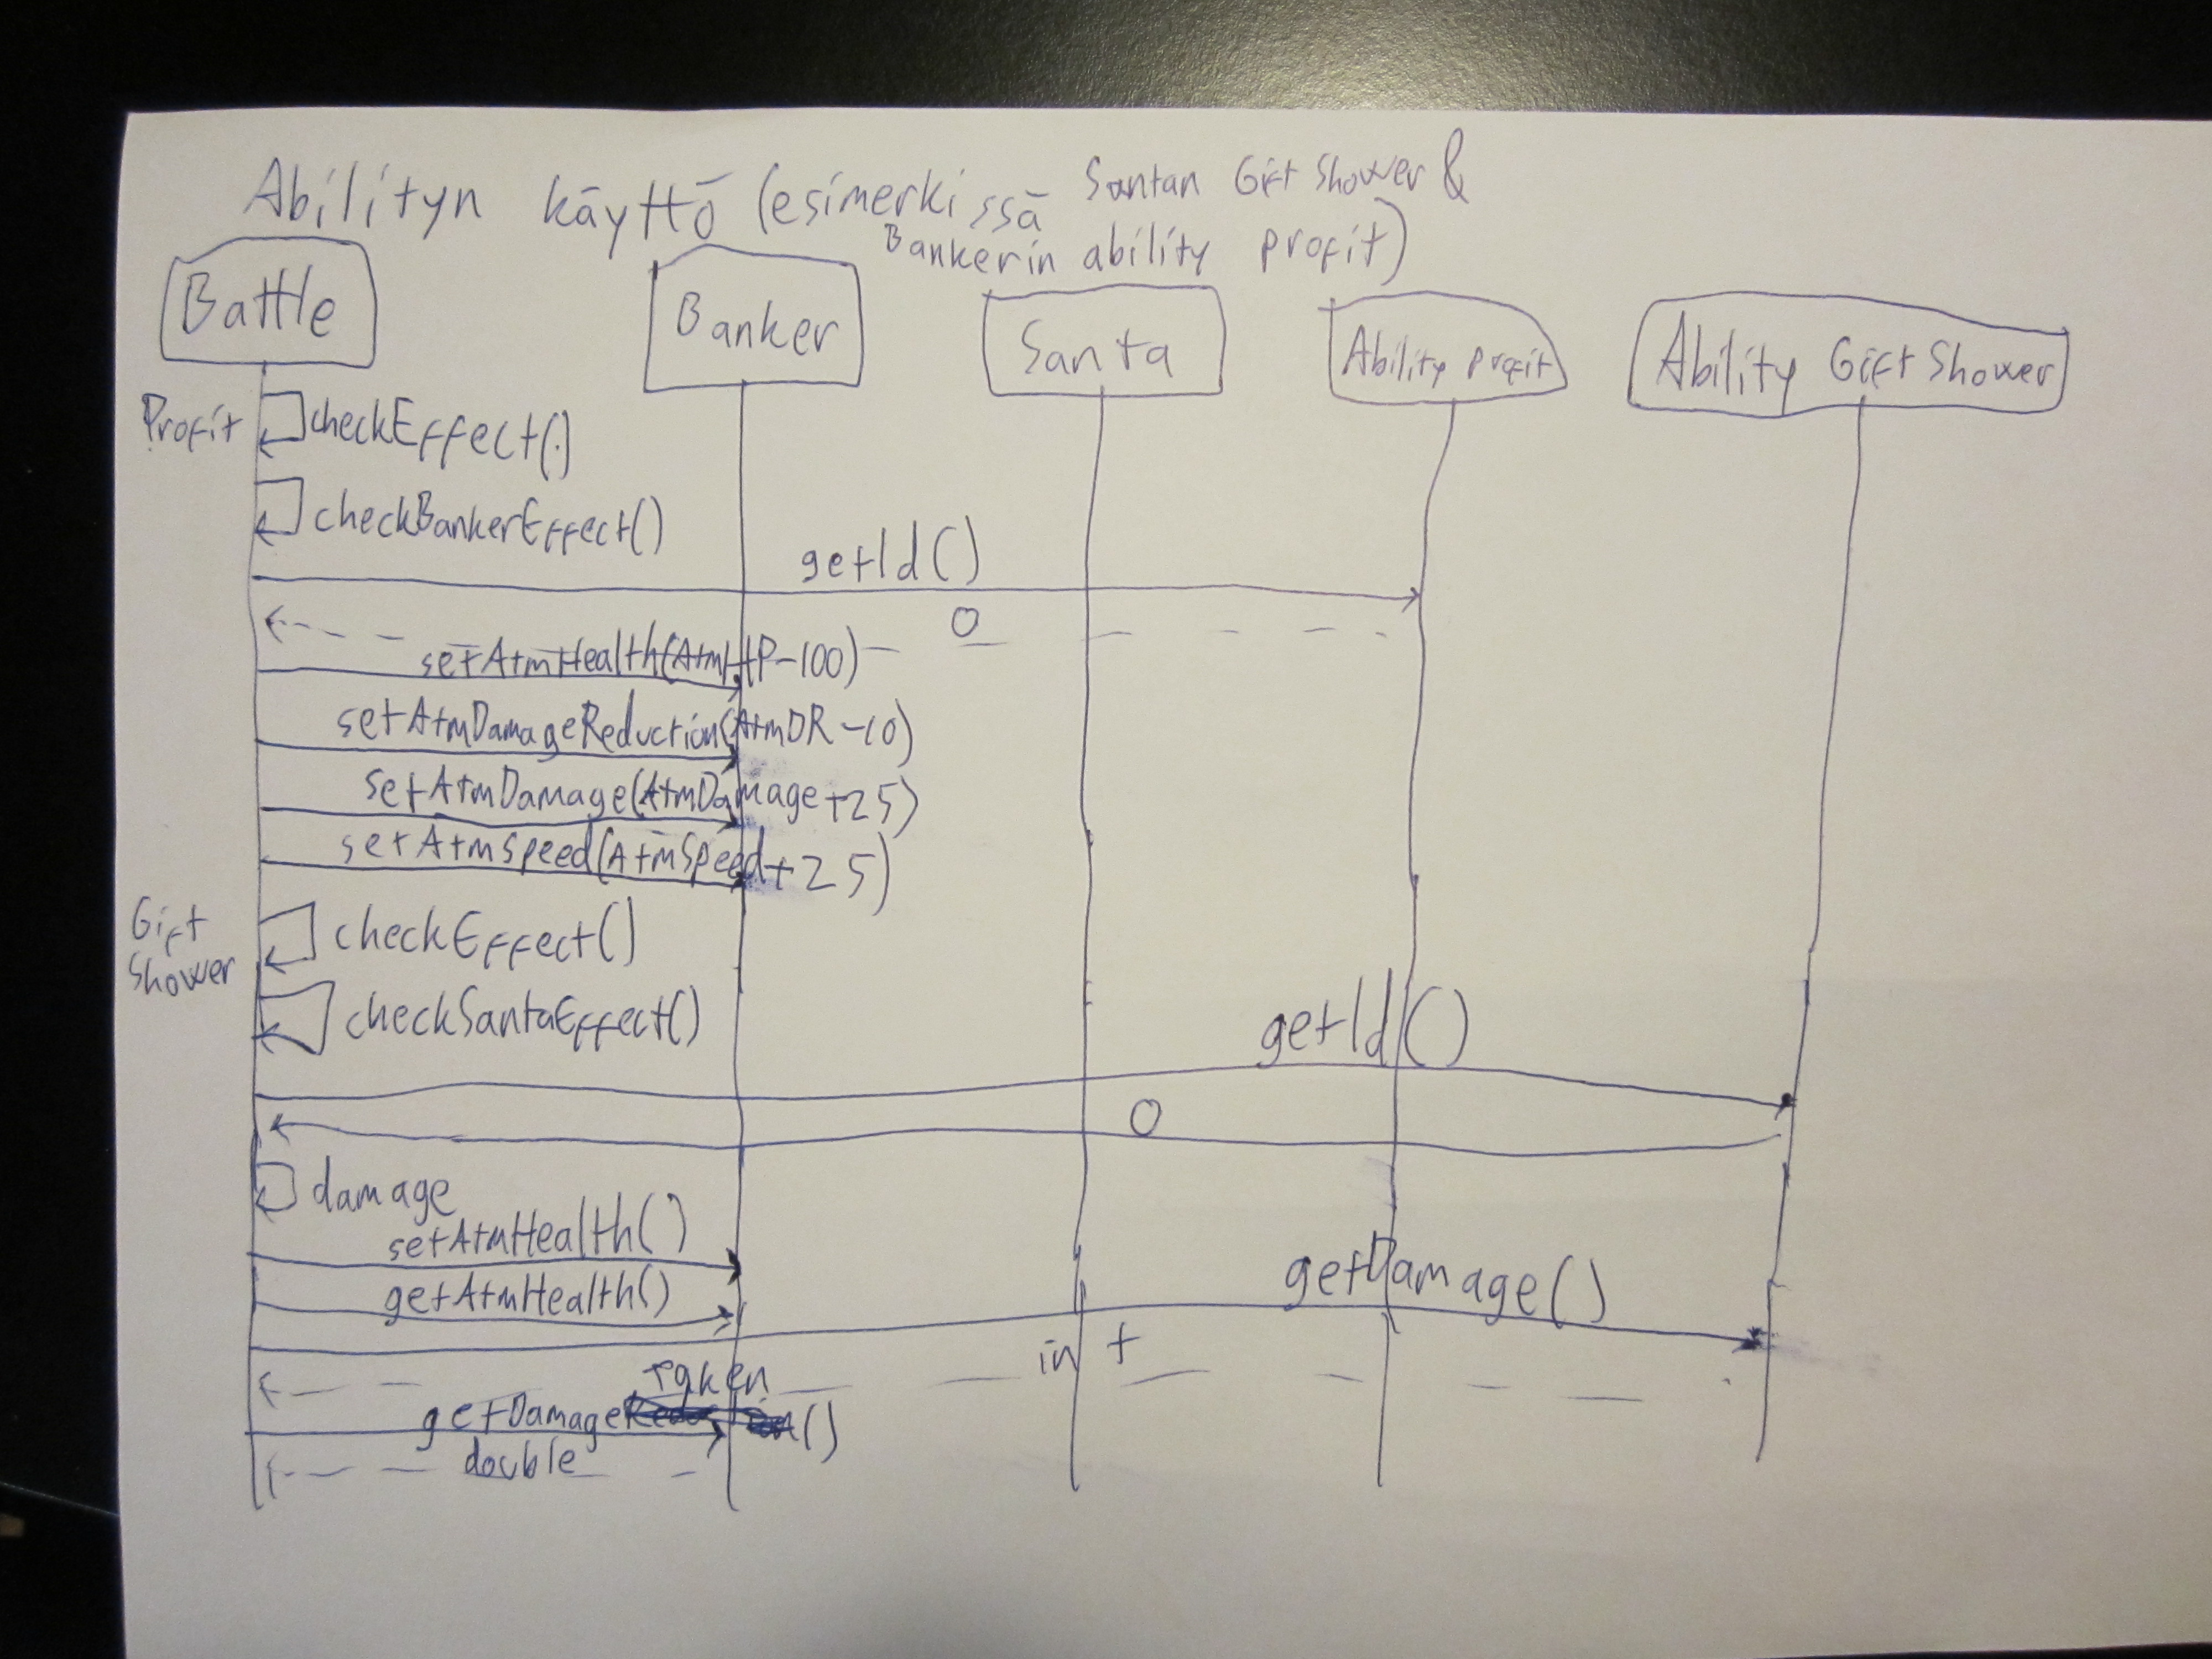 Abilityn käyttö (esimerkissä Santan Gift Shower &
Bankerin ability profit)
Battle
Banker
Santa
Ability Profit
Ability Gift Shower
Profit
checkEffect()
checkBankerEffect()
getId()
0
setAtmHealth(AtmHP-100)
setAtmDamageReduction(AtmDR-10)
setAtmDamage(AtmDamage+25)
setAtmSpeed(AtmSpeed+25)
Gift
Shower
checkEffect()
checkSantaEffect()
getId()
0
damage
setAtmHealth()
getAtmHealth()
getDamage()
int
Taken
getDamage()
double